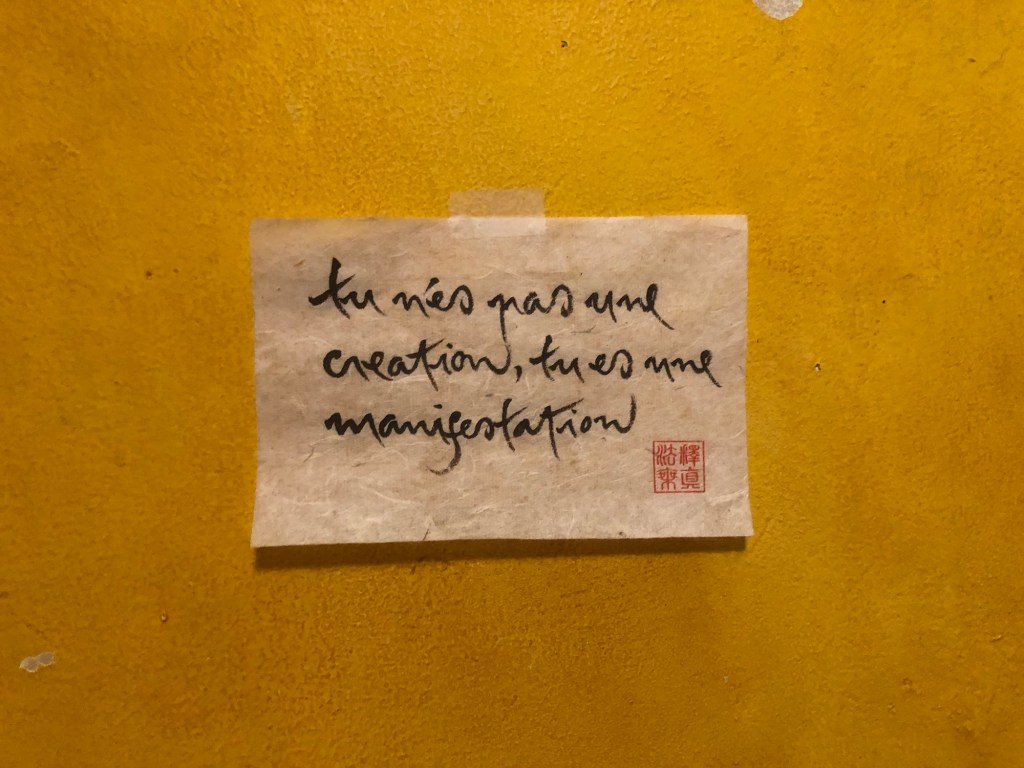 tu n'es pas une
creation, tu es une
manifestation